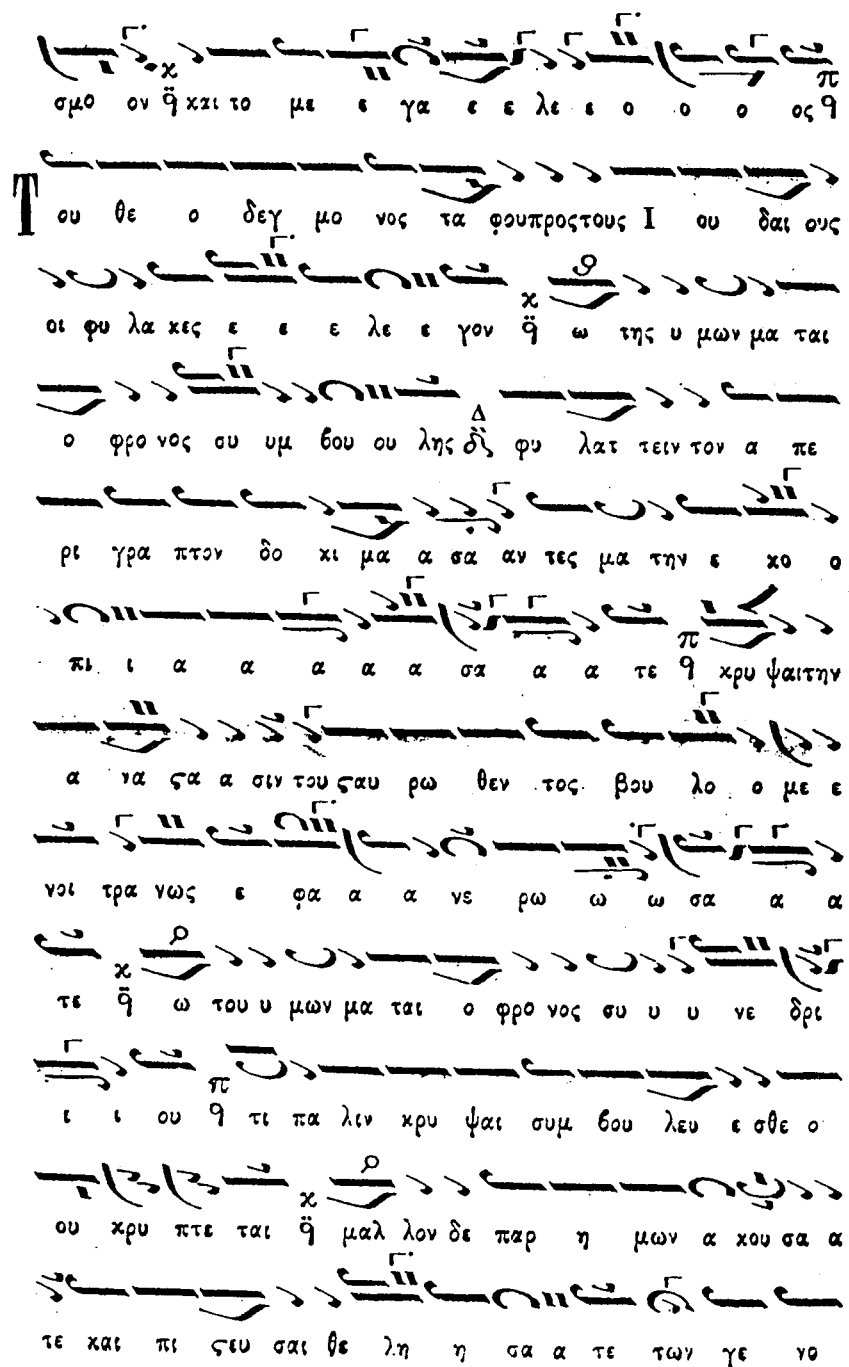 σμο ον κ q̈ και το με ε γα ε ε λε ε ο ο ο ος π q
Τ ου θε ο δεγ μο νος τα φουπροςτους Ι ου δαι ους
οι φυ λα κες ε ε ε λε ε γον κ q̈ ω της υ μων μα ται
ο φρο νος συ υμ βου ου λης Δ φυ λατ τειν τον α πε
ρι γρα πτον δο κι μα α σα αν τες μα την ε κο ο
πι ι α α α α α σα α α τε π q κρυ ψαιτην
α να ϛα α σιν του ϛαυ ρω θεν τος βου λο ο με ε
νοι τρα νως ε φα α α νε ρω ω ω σα α α
τε κ q̈ ω του υ μων μα ται ο φρο νος συ υ υ νε δρι
ι ι ου π q τι πα λιν κρυ ψαι συμ βου λευ ε σθε ο
ου κρυ πτε ται κ q̈ μαλ λον δε παρ η μων α κου σα α
τε και πι ϛευ σαι θε λη η σα α τε των γε νο